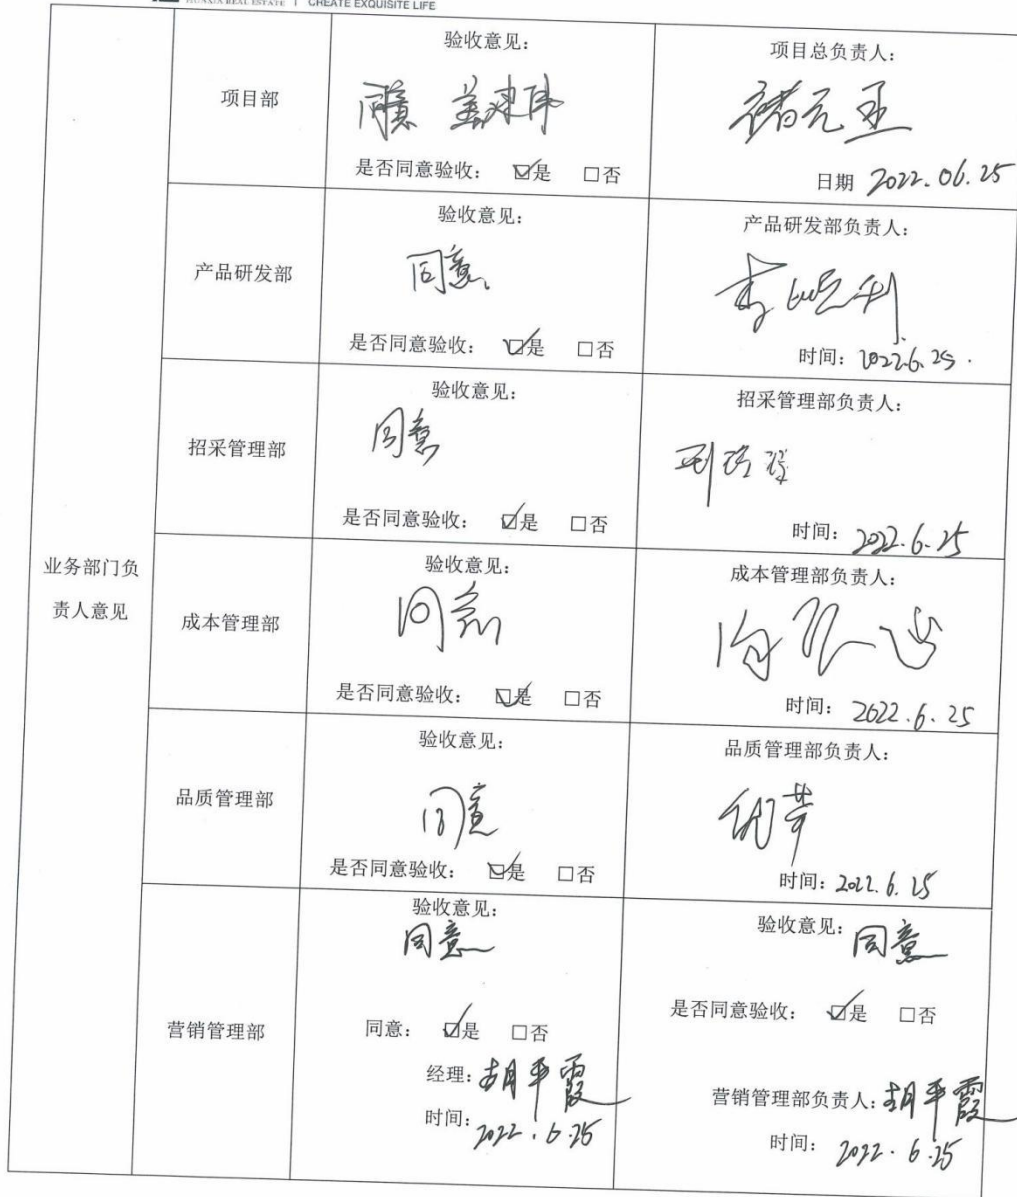 CREATE EXQUISITE LIFE
业务部门负
责人意见
项目部
验收意见:
同意
是否同意验收: ☑是 □否
项目总负责人:
日期 2022.06.25
产品研发部
验收意见:
同意
是否同意验收: ☑是 □否
产品研发部负责人:
时间: 2022.6.25
招采管理部
验收意见:
同意
是否同意验收: ☑是 □否
招采管理部负责人:
时间: 2022.6.25
成本管理部
验收意见:
同意
是否同意验收: ☑是 □否
成本管理部负责人:
时间: 2022.6.25
品质管理部
验收意见:
同意
是否同意验收: ☑是 □否
品质管理部负责人:
时间: 2022.6.25
营销管理部
验收意见:
同意
同意: ☑是 □否
经理: 胡平霞
时间: 2022.6.25
验收意见: 同意
是否同意验收: ☑是 □否
营销管理部负责人: 胡平霞
时间: 2022.6.25